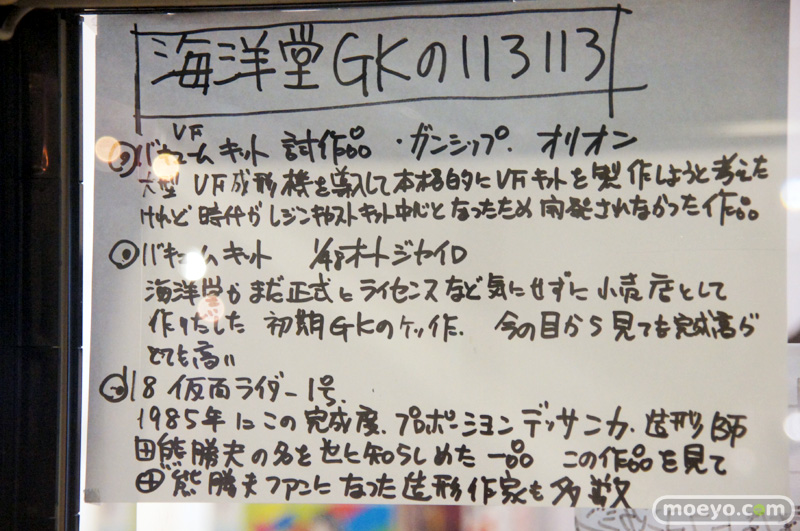 海洋堂GKの113113
VF
バキュームキット 試作品 ・ガンシップ. オリオン
大型 VF成形機を導入して本格的にVFキットを製作しようと考えた
けれど 時代がレジンキャストキット中心となったため 開発されなかった作品
バキュームキット 1/48オートジャイロ
海洋堂がまだ正式にライセンスなど気にせずに小売店として
作りだした 初期GKのケッ作. 今の目から見ても完成高が
とても高い
1/8 仮面ライダー1号.
1985年にこの完成度.プロポーション デッサンカ. 造形師
田熊勝夫の名を世に知らしめた一品 この作品を見て
田熊勝夫ファンになった造形作家も多数
moeyo.com